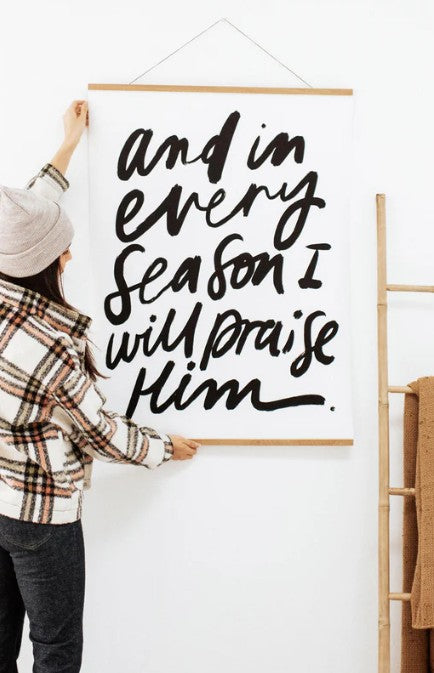 and in
every
season I
will praise
Him.